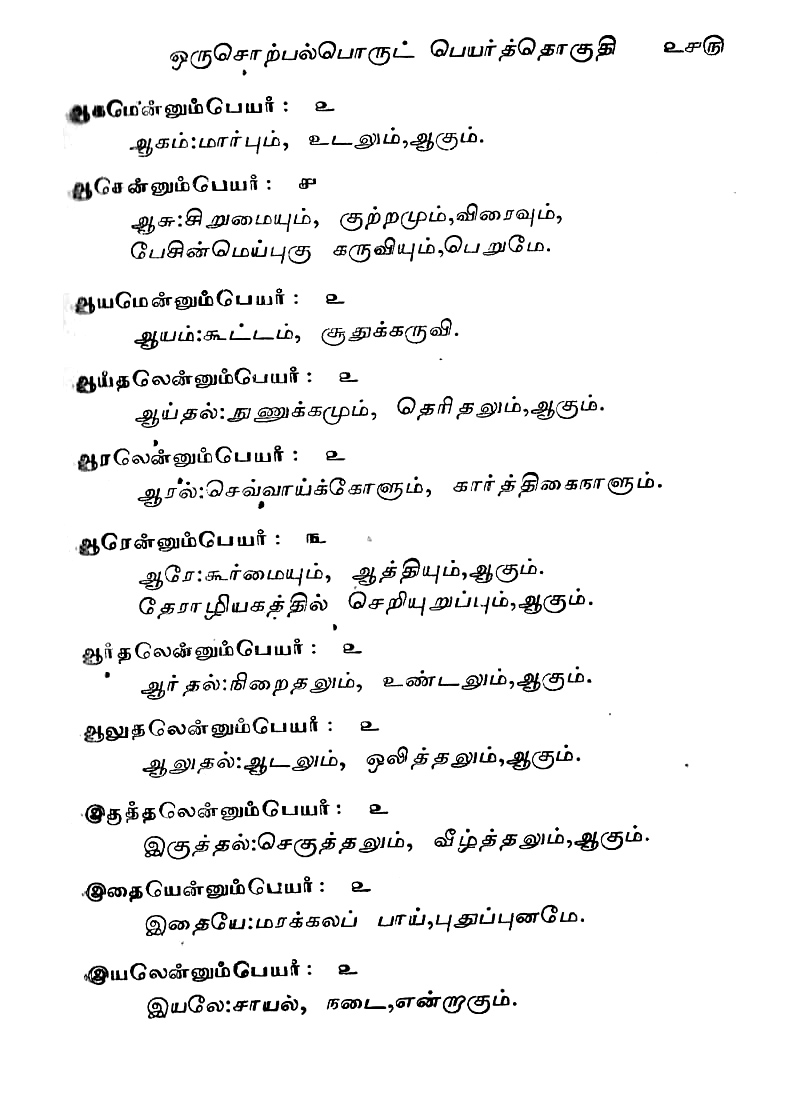 ஒருசொற்பல்பொருட் பெயர்த்தொகுதி ௨௮௫
ஆகமென்னும்பெயர் : ௨
ஆகம்:மார்பும், உடலும்,ஆகும்.
ஆசென்னும்பெயர் : ௪
ஆசு:சிறுமையும், குற்றமும்,விரைவும்,
பேசின்மெய்புகு கருவியும்,பெறுமே.
ஆயமென்னும்பெயர் : ௨
ஆயம்:கூட்டம், சூதுக்கருவி.
ஆய்தலென்னும்பெயர் : ௨
ஆய்தல்:நுணுக்கமும், தெரிதலும்,ஆகும்.
ஆரலென்னும்பெயர் : ௨
ஆரல்:செவ்வாய்க்கோளும், கார்த்திகைநாளும்.
ஆரென்னும்பெயர் : ௩
ஆரே:கூர்மையும், ஆத்தியும்,ஆகும்.
தேராழியகத்தில் செறியுறுப்பும்,ஆகும்.
ஆர்தலென்னும்பெயர் : ௨
ஆர்தல்:நிறைதலும், உண்டலும்,ஆகும்.
ஆலுதலென்னும்பெயர் : ௨
ஆலுதல்:ஆடலும், ஒலித்தலும்,ஆகும்.
இகுத்தலென்னும்பெயர் : ௨
இகுத்தல்:செகுத்தலும், வீழ்த்தலும்,ஆகும்.
இதையென்னும்பெயர் : ௨
இதையே:மரக்கலப் பாய்,புதுப்புனமே.
இயலென்னும்பெயர் : ௨
இயலே:சாயல், நடை,என்றாகும்.